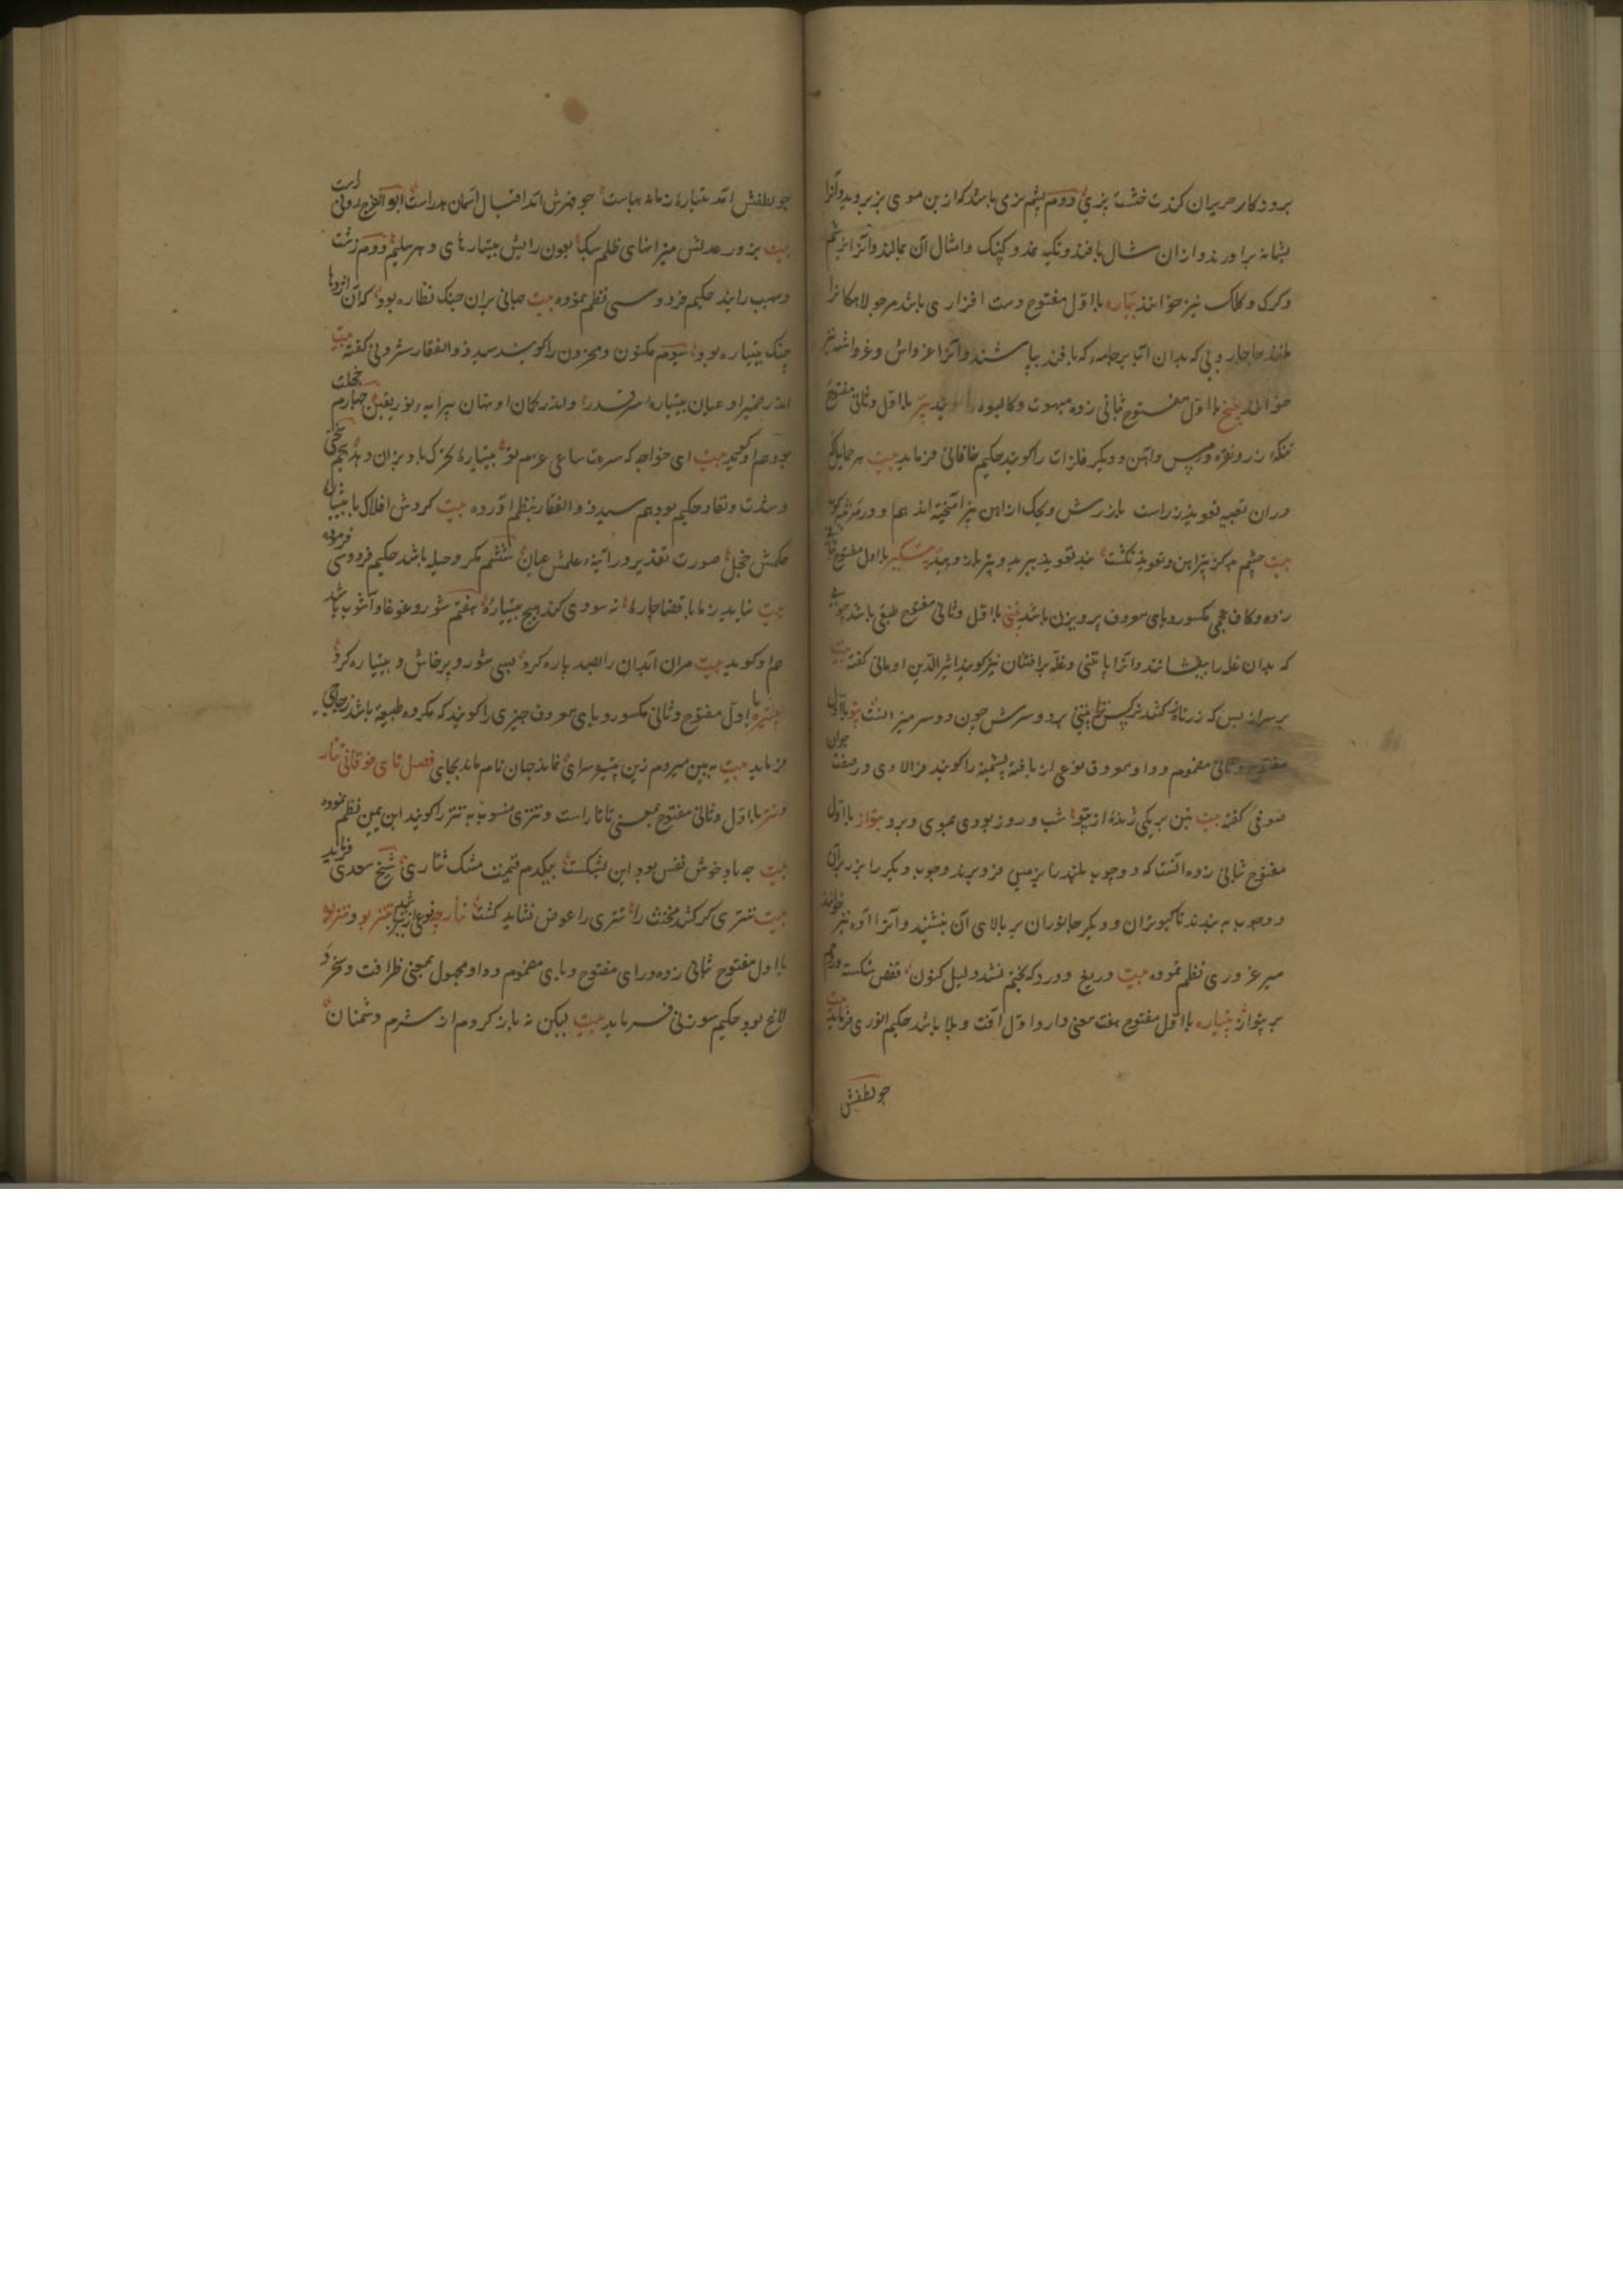 برود کار حریران کندت خشت پزی دووم پشم نرمی باشد که از بن موی بز بروید و آنرا
بشانه برآورند و از آن شال بافند و تکیه نمد و کپنک و امثال آن بمالند و آنرا بز پشم
و کرک و کلک نیز خوانند پتاره با اول مفتوح دست افزاری باشد مر جولاهگانرا
مانند جاروبی که بدان آب بر جامه که بافند بپاشند و آنرا غرواش و غرواشه نیز
خوانند پتخ با اول مفتوح بثانی زده مبهوت و کالیوه را گویند پتر با اول و ثانی مفتوح
تنکه زر و نقره و مس و آهن و دیگر فلزات را گویند حکیم خاقانی فرماید بیت
در آن تعبیه تعویذ زر است باز رش و یک از این نیز آمیخته اند هم و در مرثیه گوید
بیت چشم بد کز پتر آهن و تعویذ نگشت بند تعویذ ببرید و پتر باز دهید با اول مفتوح
زده و کاف عجمی مکسور و یای معروف پرویزن باشد پتنی با اول و ثانی مفتوح طبقی باشد چوبی
که بدان غله را بیفشانند و آنرا پاتنی و غله برافشان نیز گویند اثیر الدین اومانی گفته بیت
بر سرانه پس که زرنات کشد پتنی برد و سرش چون دو سر میزانست پتو با اول
مفتوح و ثانی مضموم و واو معروف نوعی از بافته پشمینه را گویند فزالاوی در صفت جوان
صوفی گفته بیت بین بریکی ژنده از پتو شب و روز بودی بموی و برو پتواز با اول
مفتوح بثانی زده آنست که دو چوب بلند را بزمین فرو برند و چوب دیگر را بر زبر آن
دو چوب به بندند تا کبوتران و دیگر جانوران بر بالای آن بنشینند و آنرا آده نیز خوانند
میر غروری نظم نموده بیت دریغ و درد که بختم نشد دلیل کنون قفص شکسته
بر پتواز پتیاره با اول مفتوح هفت معنی دارد اول آفت و بلا باشد حکیم انوری فرماید بیت
جو لطفش
جو لطفش آمد پتیاره زمانه هباست جو قهرش آمد اقبال آسمان هدر است ابو الفرج رونی راست
بیت بزور عدلش میزانهای ظلم سبک بعون رایش پتیارهای دهر سلیم دووم زشت
و مهیب را یند حکیم فردوسی نظم نموده بیت جهانی بران جنک نظاره بود که آن اژدها
جنک پتیاره بود سیوم مکنون و مخزون را گویند سید ذوالفقار شروانی گفته بیت
اندر ضمیر او عیان پتیاره سر قدر و اندر گمان او نهان پیرایه نور یقین چهارم خجلت
بود هم او گوید بیت ای خواجه که سرعت ساعی عزم تو پتیاره تحرک باد بزان دهد پنجم سختی
و شدت و تقاد حکیم بود هم سید ذوالفقار بنظم آورده بیت کردش افلاک با پتیاره
حکمش خجل صورت تقدیر در آئینه علمش عیان ششم مکر و حیله باشد حکیم فردوسی فرموده
بیت نیاید زما با قضا چاره نه سودی کند هیچ پتیاره هفتم شور و غوغا و آشوب باشد
هم او گوید بیت مران آبدان را بصد پاره کرد بسی شور و پرخاش و پتیاره کرد
با اول مفتوح و ثانی مکسور و یای معروف چیزی را گویند که مکروه طبیعة باشد زجاجی
فرماید بیت به بین میروم زین سرای نماند جهان نام ماند بجای فصل تای فوقانی تتار
و تتر با اول و ثانی مفتوح بمعنی تاتار است و تتری منسوب به تتر را گویند ابن یمین نظم نموده
بیت چه باد خوش نفس بود این بشکست بیکدم قیمت مشک تتاری شیخ سعدی فرماید
بیت تتری گر کشد مخنث را تتری را عوض نشاید کشت و تتربو
با اول مفتوح بثانی زده و رای مفتوح و بای مضموم و واو مجهول بمعنی ظرافت و سخره و
لاغ بود حکیم سوزنی فرماید بیت لیکن نه باز کردم از شرم دشمنان